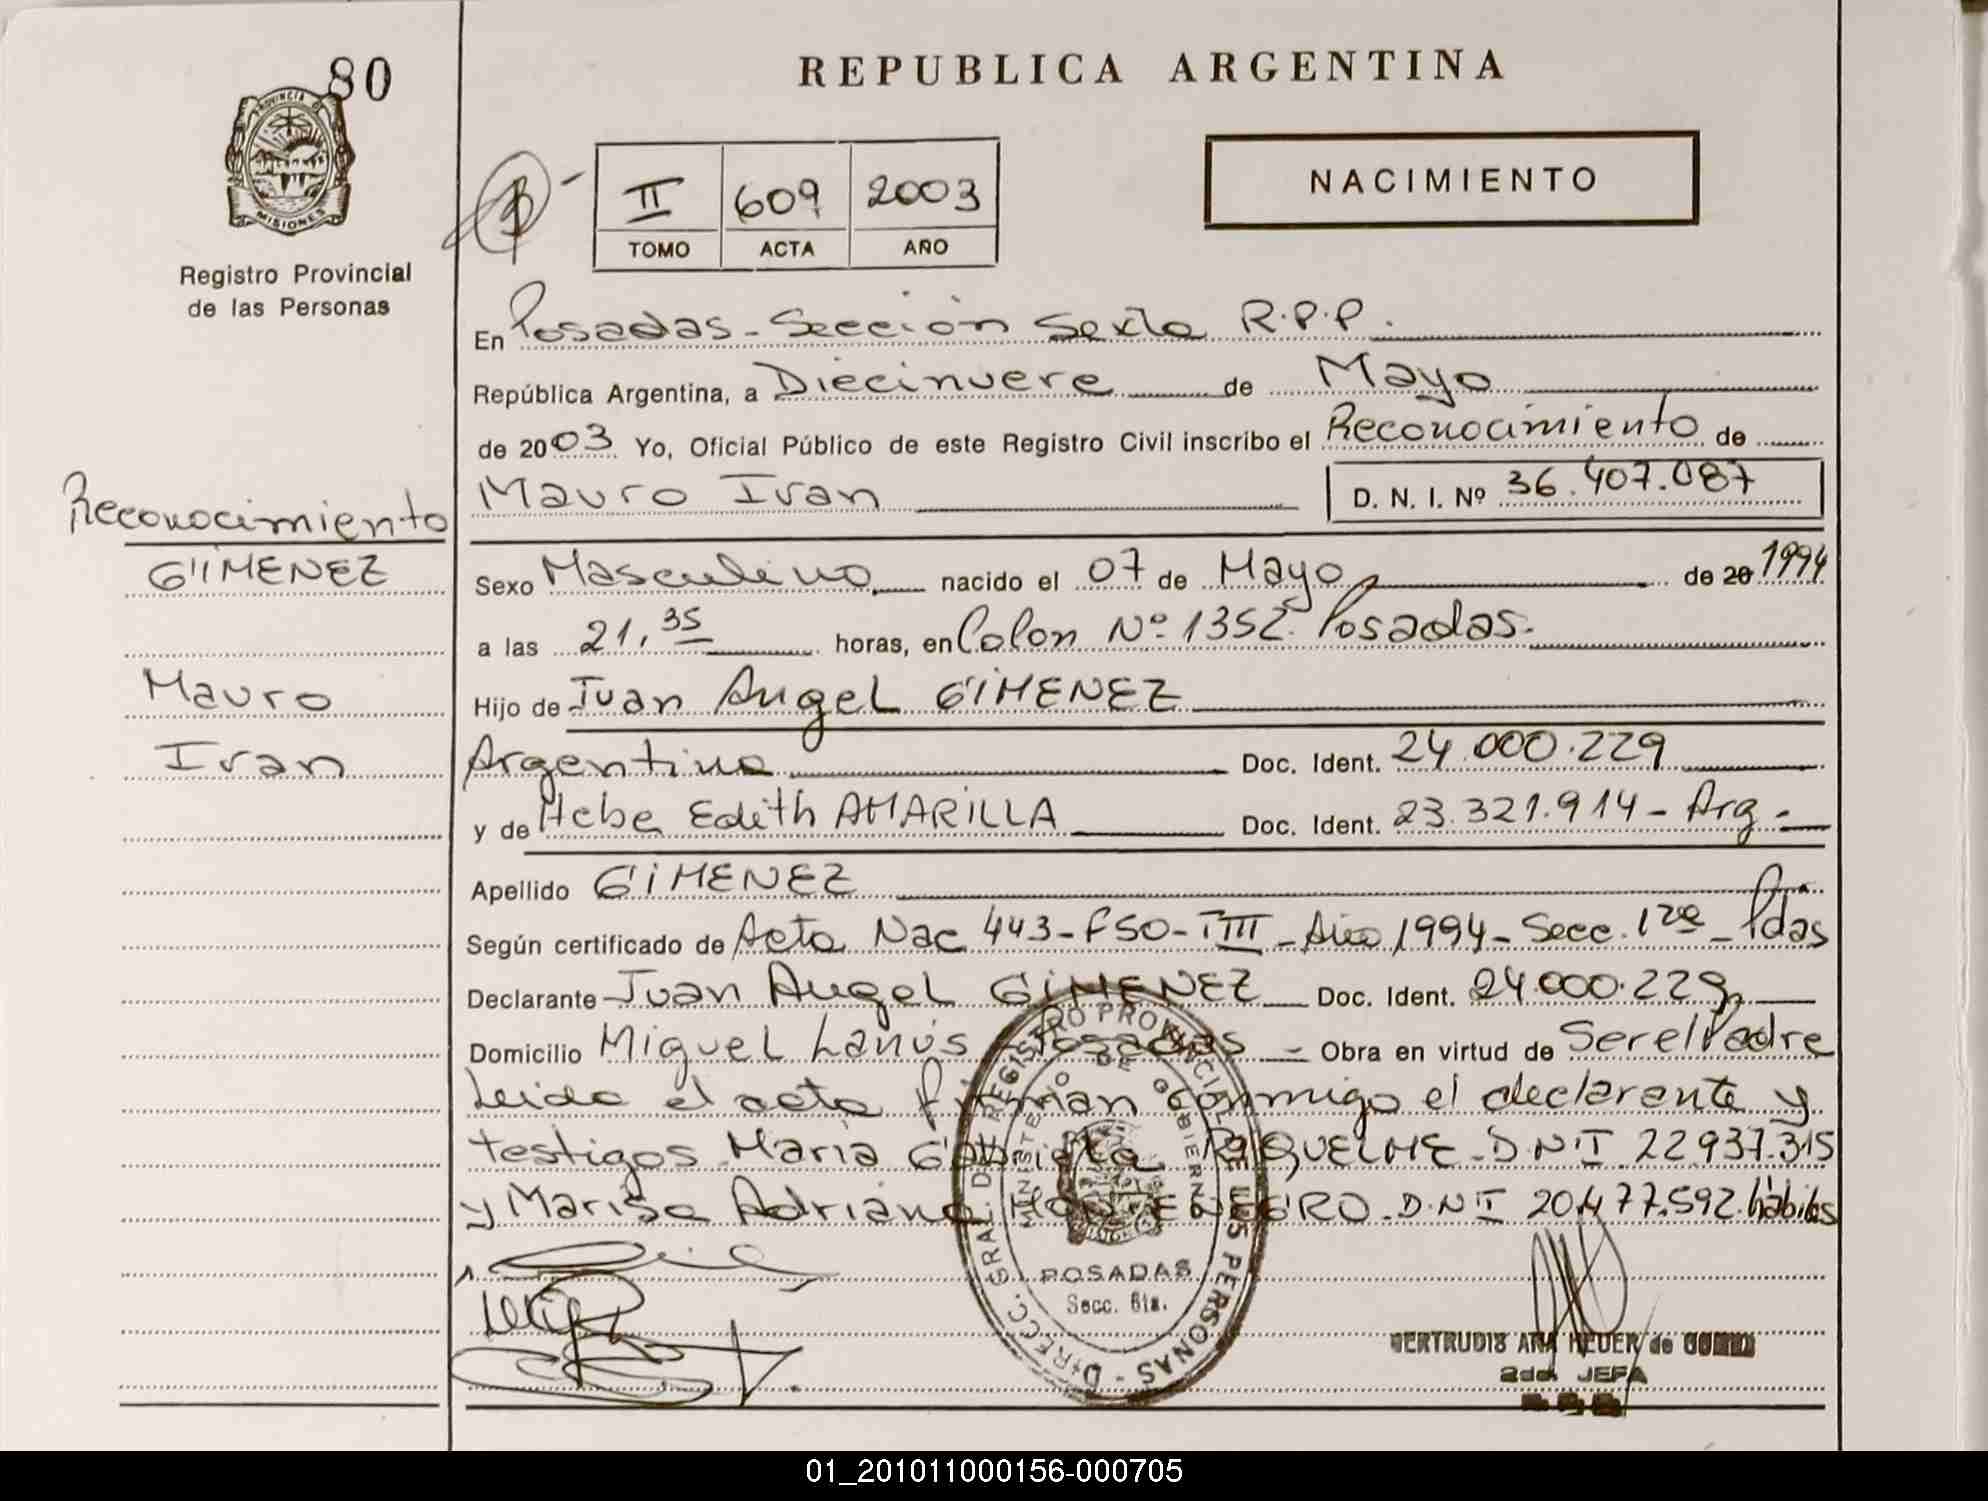 80
PROVINCIA DE
MISIONES
Registro Provincial
de las Personas
REPUBLICA ARGENTINA
NACIMIENTO
II 609 2003
TOMO ACTA AÑO
En Posadas - Sección Sexta R.P.P.
República Argentina, a Diecinueve de Mayo
de 2003 Yo, Oficial Público de este Registro Civil inscribo el Reconocimiento de
Mauro Ivan D. N. I. Nº 36.407.087
Reconocimiento
GIMENEZ
Mauro
Ivan
Sexo Masculino nacido el 07 de Mayo de 20 1994
a las 21,35 horas, en Colon Nº 1352 Posadas.
Hijo de Juan Angel GIMENEZ
Argentino Doc. Ident. 24.000.229
y de Hebe Edith AMARILLA Doc. Ident. 23.321.914 - Arg -
Apellido GIMENEZ
Según certificado de Acta Nac 443 - FSO - TIII - Año 1994 - Secc. 1ra - Pdas
Declarante Juan Angel GIMENEZ Doc. Ident. 24.000.229
Domicilio Miguel Lanús - Posadas - Obra en virtud de Ser el Padre
Leida el acta firman conmigo el declarante y
testigos Maria Gabriela RIQUELME - D.N.I 22.937.315
y Marisa Adriana MONTENEGRO - D.N.I 20.477.592 hábiles
DIRECC. GRAL. DE REGISTRO PROVINCIAL DE LAS PERSONAS
MINISTERIO DE GOBIERNO
POSADAS
Secc. 6ta.
GERTRUDIS ANA HEUER de
2da JEFA
01_201011000156-000705